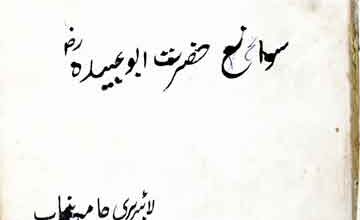 سوانح حضرت ابو عبیدہ رض
لائبریری جامعہ پنجاب